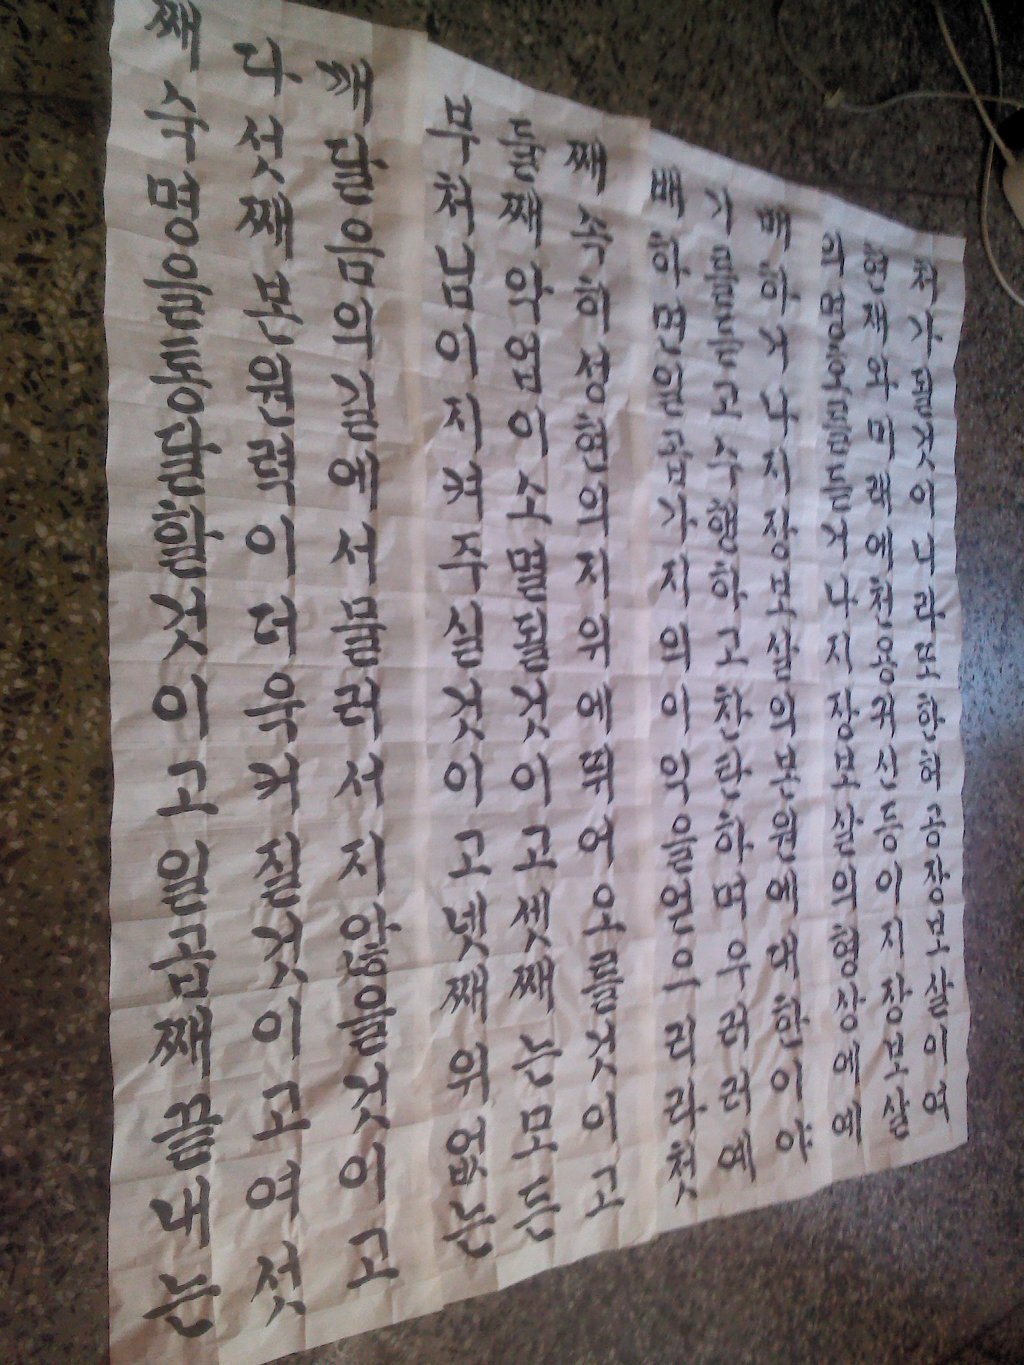 천가될것이니라또한허공장보살이여
현재와미래에천용귀신등이지장보살
의명호를듣거나지장보살의형상에예
배하거나지장보살의본원에대한이야
기를듣고수행하고찬탄하며우러러예
배하면일곱가지의이익을얻으리라첫
째속히성현의지위에뛰어오를것이고
둘째악업이소멸될것이고셋째는모든
부처님이지켜주실것이고넷째위없는
깨달음의길에서물러서지않을것이고
다섯째본원력이더욱커질것이고여섯
째숙명통을통달할것이고일곱째끝내는